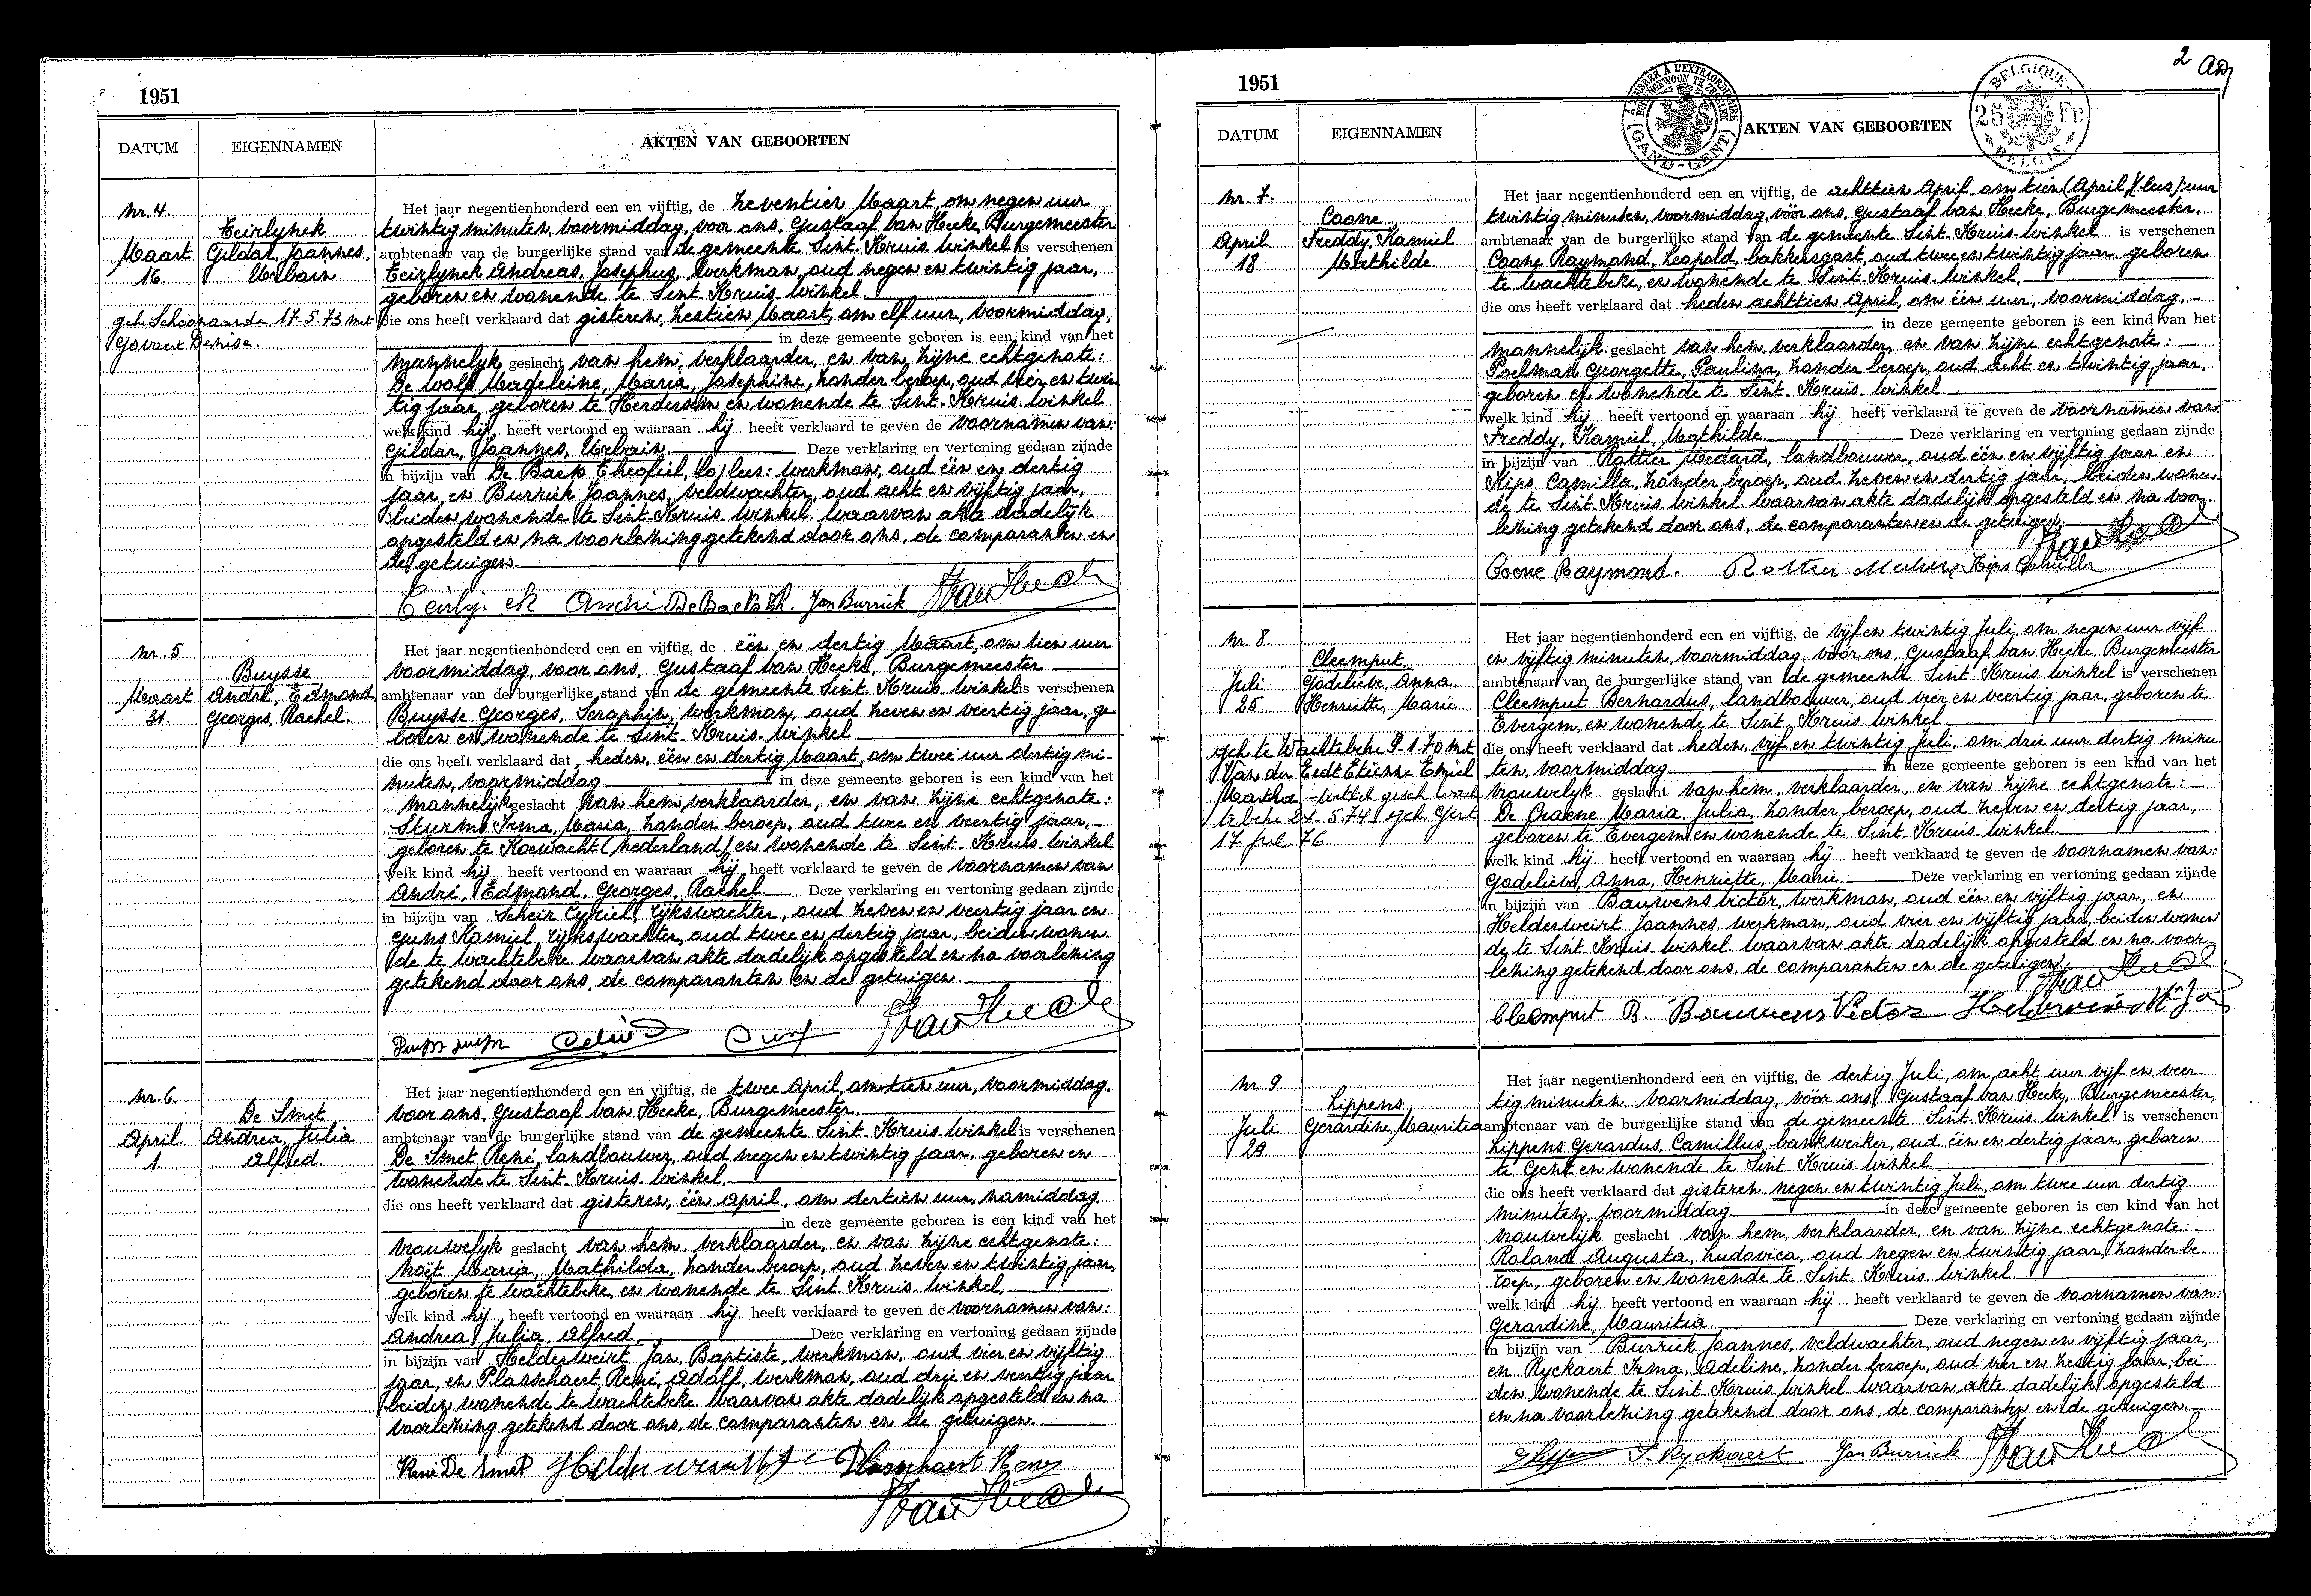 1951
DATUM
EIGENNAMEN
AKTEN VAN GEBOORTEN
Nr. 4.
Teirlynck
Maart Gildar, Joannes,
16. Urbain
geh. Schoonaarde 17.5.73 met
Govaert Denise.
Het jaar negentienhonderd een en vijftig, de zeventien Maart, om negen uur
twintig minuten, voormiddag, voor ons, Gustaaf van Hecke, Burgemeester
ambtenaar van de burgerlijke stand van de gemeente Sint-Kruis-Winkel is verschenen
Teirlynck Andreas, Josephus, werkman, oud negen en twintig jaar,
geboren en wonende te Sint-Kruis-Winkel
die ons heeft verklaard dat gisteren, zestien Maart, om elf uur, voormiddag,
in deze gemeente geboren is een kind van het
mannelijk geslacht van hem, verklaarder, en van zijne echtgenote:
De Wolf Magdeleine, Maria, Josephine, zonder beroep, oud vier en twin
tig jaar, geboren te Herdersem en wonende te Sint-Kruis-Winkel
welk kind hij heeft vertoond en waaraan hij heeft verklaard te geven de voornamen van:
Gildar, Joannes, Urbain Deze verklaring en vertoning gedaan zijnde
in bijzijn van De Baets Theofiel, lees: werkman, oud één en dertig
jaar, en Burrick Joannes, veldwachter, oud acht en vijftig jaar,
beiden wonende te Sint-Kruis-Winkel waarvan akte dadelijk
opgesteld en na voorlezing getekend door ons, de comparanten en
de getuigen.
Teirlynck André De Baets Th. Jan Burrick
Nr. 5
Buysse
Maart André, Edmond
31. Georges, Rachel.
Het jaar negentienhonderd een en vijftig, de één en dertig Maart, om tien uur
voormiddag, voor ons, Gustaaf van Hecke, Burgemeester
ambtenaar van de burgerlijke stand van de gemeente Sint-Kruis-Winkel is verschenen
Buysse Georges, Seraphin, werkman, oud zeven en veertig jaar, ge
boren en wonende te Sint-Kruis-Winkel
die ons heeft verklaard dat heden, één en dertig Maart, om twee uur dertig mi-
nuten, voormiddag in deze gemeente geboren is een kind van het
mannelijk geslacht van hem, verklaarder, en van zijne echtgenote:
Sturm Irma, Maria, zonder beroep, oud twee en veertig jaar,
geboren te Koewacht (Nederland) en wonende te Sint-Kruis-Winkel
welk kind hij heeft vertoond en waaraan hij heeft verklaard te geven de voornamen van
André, Edmond, Georges, Rachel Deze verklaring en vertoning gedaan zijnde
in bijzijn van Scheir Cyriel, rijkswachter, oud zeven en veertig jaar en
Kamiel, rijkswachter, oud twee en dertig jaar, beiden wonen-
de te Wachtebeke waarvan akte dadelijk opgesteld en na voorlezing
getekend door ons, de comparanten en de getuigen.
Nr. 6.
De Smet
April Andrea, Julia
1. Alfred.
Het jaar negentienhonderd een en vijftig, de twee April, om tien uur, voormiddag,
voor ons, Gustaaf van Hecke, Burgemeester.
ambtenaar van de burgerlijke stand van de gemeente Sint-Kruis-Winkel is verschenen
De Smet René, landbouwer, oud negen en twintig jaar, geboren en
wonende te Sint-Kruis-Winkel,
die ons heeft verklaard dat gisteren, één April, om dertien uur, namiddag
in deze gemeente geboren is een kind van het
vrouwelijk geslacht van hem, verklaarder, en van zijne echtgenote:
Maria, Mathilda, zonder beroep, oud zeven en twintig jaar,
geboren te Wachtebeke, en wonende te Sint-Kruis-Winkel,
welk kind hij heeft vertoond en waaraan hij heeft verklaard te geven de voornamen van:
Andrea, Julia, Alfred Deze verklaring en vertoning gedaan zijnde
in bijzijn van Helderweirt Jan, Baptiste, werkman, oud vier en vijftig
jaar, en Plasschaert René, Adolf, werkman, oud drie en veertig jaar
beiden wonende te Wachtebeke waarvan akte dadelijk opgesteld en na
voorlezing getekend door ons, de comparanten en de getuigen.
René De Smet Plasschaert René
2
1951
À TIMBRER À L'EXTRAORDINAIRE
(GAND-GENT)
BELGIQUE
25 FR
BELGIË
DATUM
EIGENNAMEN
AKTEN VAN GEBOORTEN
Nr. 7.
Coone
April Freddy, Kamiel
18 Mathilde.
Het jaar negentienhonderd een en vijftig, de achttien April, om tien (April) (lees): uur
twintig minuten, voormiddag, vóór ons, Gustaaf van Hecke, Burgemeester,
ambtenaar van de burgerlijke stand van de gemeente Sint-Kruis-Winkel is verschenen
Coone Raymond, Leopold, bakkersgast, oud twee en twintig jaar, geboren
te Wachtebeke, en wonende te Sint-Kruis-Winkel,
die ons heeft verklaard dat heden achttien April, om één uur, voormiddag,
in deze gemeente geboren is een kind van het
mannelijk geslacht van hem, verklaarder, en van zijne echtgenote:
Poelman Georgette, Paulina, zonder beroep, oud acht en twintig jaar,
geboren en wonende te Sint-Kruis-Winkel
welk kind hij heeft vertoond en waaraan hij heeft verklaard te geven de voornamen van
Freddy, Kamiel, Mathilde. Deze verklaring en vertoning gedaan zijnde
in bijzijn van Rottier Medard, landbouwer, oud één en vijftig jaar en
Kips Camilla, zonder beroep, oud zeven en dertig jaar, beiden wonen-
de te Sint-Kruis-Winkel waarvan akte dadelijk opgesteld en na voor-
lezing getekend door ons, de comparanten en de getuigen.
Coone Raymond. Rottier Medard Kips Camilla
Nr. 8.
Cleemput
Juli Godelieve, Anna.
25 Henriette, Marie
geh. te Wachtebeke 9-1-70 met
Van der Eedt Etienne Emiel
Martha
17 jul. 76
Het jaar negentienhonderd een en vijftig, de vijf en twintig Juli, om negen uur vijf
en vijftig minuten, voormiddag, vóór ons, Gustaaf van Hecke, Burgemeester
ambtenaar van de burgerlijke stand van de gemeente Sint-Kruis-Winkel is verschenen
Cleemput Bernardus, landbouwer, oud vier en veertig jaar, geboren te
Evergem, en wonende te Sint-Kruis-Winkel
die ons heeft verklaard dat heden, vijf en twintig Juli, om drie uur dertig minu
ten, voormiddag in deze gemeente geboren is een kind van het
vrouwelijk geslacht van hem, verklaarder, en van zijne echtgenote:
De Craene Maria, Julia, zonder beroep, oud zeven en dertig jaar,
geboren te Evergem en wonende te Sint-Kruis-Winkel.
welk kind hij heeft vertoond en waaraan hij heeft verklaard te geven de voornamen van:
Godelieve, Anna, Henriette, Marie Deze verklaring en vertoning gedaan zijnde
in bijzijn van Bauwens Victor, werkman, oud één en vijftig jaar, en
Helderweirt Joannes, werkman, oud vier en vijftig jaar, beiden wonen
de te Sint-Kruis-Winkel waarvan akte dadelijk opgesteld en na voor-
lezing getekend door ons, de comparanten en de getuigen.
Cleemput B. Bauwens Victor
Nr 9.
Lippens
Juli Gerardine, Mauritia
29
Het jaar negentienhonderd een en vijftig, de dertig Juli, om acht uur vijf en veer-
tig minuten, voormiddag, vóór ons, Gustaaf van Hecke, Burgemeester,
ambtenaar van de burgerlijke stand van de gemeente Sint-Kruis-Winkel is verschenen
Lippens Gerardus, Camillus, bankwerker, oud één en dertig jaar, geboren
te Gent en wonende te Sint-Kruis-Winkel
die ons heeft verklaard dat gisteren, negen en twintig Juli, om twee uur dertig
minuten, voormiddag in deze gemeente geboren is een kind van het
vrouwelijk geslacht van hem, verklaarder, en van zijne echtgenote:
Roland Augusta, Ludovica, oud negen en twintig jaar, zonder be-
roep, geboren en wonende te Sint-Kruis-Winkel
welk kind hij heeft vertoond en waaraan hij heeft verklaard te geven de voornamen van:
Gerardine, Mauritia Deze verklaring en vertoning gedaan zijnde
in bijzijn van Burrick Joannes, veldwachter, oud negen en vijftig jaar,
en Ryckaert Irma, Adeline, zonder beroep, oud vier en zestig jaar, bei
den wonende te Sint-Kruis-Winkel waarvan akte dadelijk opgesteld
en na voorlezing getekend door ons, de comparanten en de getuigen
I. Ryckaert Jan Burrick